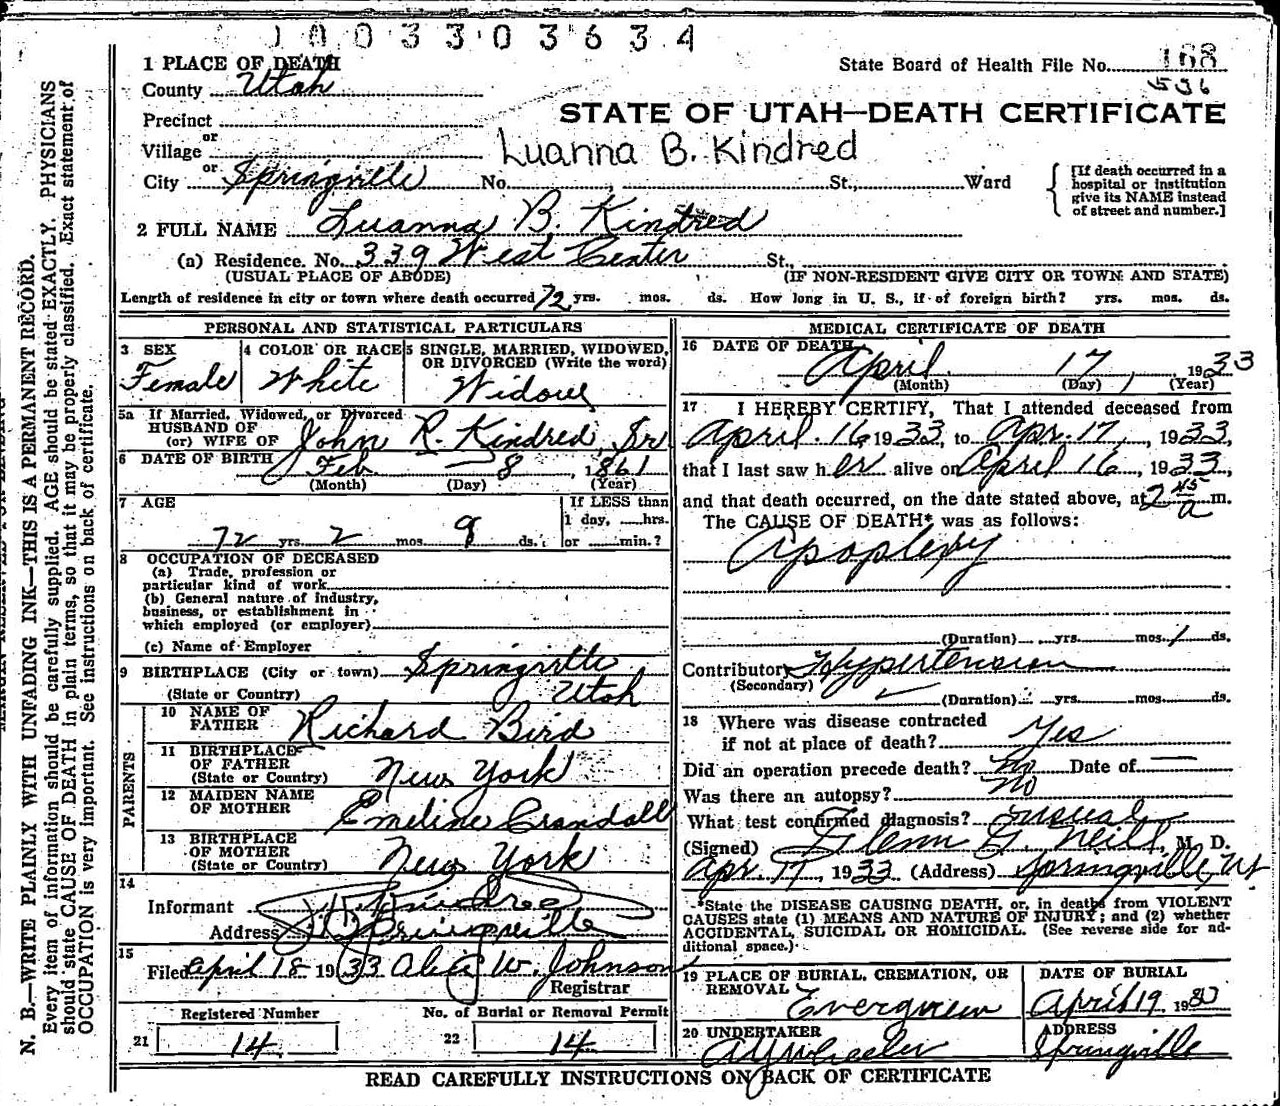 1003303634
1 PLACE OF DEATH
State Board of Health File No. 168
County Utah
536
STATE OF UTAH—DEATH CERTIFICATE
Precinct
or
Village
Luanna B. Kindred
or
City Springville No. , St., Ward
[If death occurred in a hospital or institution give its NAME instead of street and number.]
2 FULL NAME Luanna B. Kindred
(a) Residence. No. 339 West Center St.,
(USUAL PLACE OF ABODE) (IF NON-RESIDENT GIVE CITY OR TOWN AND STATE)
Length of residence in city or town where death occurred 72 yrs. mos. ds. How long in U. S., if of foreign birth? yrs. mos. ds.
PERSONAL AND STATISTICAL PARTICULARS
3 SEX
Female
4 COLOR OR RACE
White
5 SINGLE, MARRIED, WIDOWED,
OR DIVORCED (Write the word)
Widow
5a If Married, Widowed, or Divorced
HUSBAND OF
(or) WIFE OF John R. Kindred Sr
6 DATE OF BIRTH Feb — 8, 1861
(Month) (Day) (Year)
7 AGE
72 yrs. 2 mos. 9 ds.
If LESS than
1 day, hrs.
or min.?
8 OCCUPATION OF DECEASED
(a) Trade, profession or
particular kind of work
(b) General nature of industry,
business, or establishment in
which employed (or employer)
(c) Name of Employer
9 BIRTHPLACE (City or town) Springville
(State or Country) Utah
PARENTS
10 NAME OF
FATHER Richard Bird
11 BIRTHPLACE
OF FATHER
(State or Country) New York
12 MAIDEN NAME
OF MOTHER Emeline Crandall
13 BIRTHPLACE
OF MOTHER
(State or Country) New York
14
Informant
Address Springville
15
Filed April 18 1933 W. Johnson
Registrar
Registered Number
21 14
No. of Burial or Removal Permit
22 14
MEDICAL CERTIFICATE OF DEATH
16 DATE OF DEATH
April 17, 1933
(Month) (Day) (Year)
17 I HEREBY CERTIFY, That I attended deceased from
April. 16 1933, to Apr. 17, 1933,
that I last saw her alive on April 16, 1933
and that death occurred, on the date stated above, at 2 45 a m.
The CAUSE OF DEATH* was as follows:
Apoplexy
(Duration) yrs. mos. 1 ds.
Contributory Hypertension
(Secondary)
(Duration) yrs. mos. ds.
18 Where was disease contracted
if not at place of death? Yes
Did an operation precede death? No Date of —
Was there an autopsy? No
What test confirmed diagnosis? usual
(Signed) Glenn G. Neill, M. D.
Apr. 17, 1933 (Address) Springville, Ut
*State the DISEASE CAUSING DEATH, or, in deaths from VIOLENT
CAUSES state (1) MEANS AND NATURE OF INJURY; and (2) whether
ACCIDENTAL, SUICIDAL OR HOMICIDAL. (See reverse side for ad-
ditional space.)
19 PLACE OF BURIAL, CREMATION, OR
REMOVAL
Evergreen
DATE OF BURIAL
April 19, 1933
20 UNDERTAKER
A Y Wheeler
ADDRESS
Springville
READ CAREFULLY INSTRUCTIONS ON BACK OF CERTIFICATE
N. B.—WRITE PLAINLY WITH UNFADING INK—THIS IS A PERMANENT RECORD.
Every item of information should be carefully supplied. AGE should be stated EXACTLY. PHYSICIANS
should state CAUSE OF DEATH in plain terms, so that it may be properly classified. Exact statement of
OCCUPATION is very important. See instructions on back of certificate.